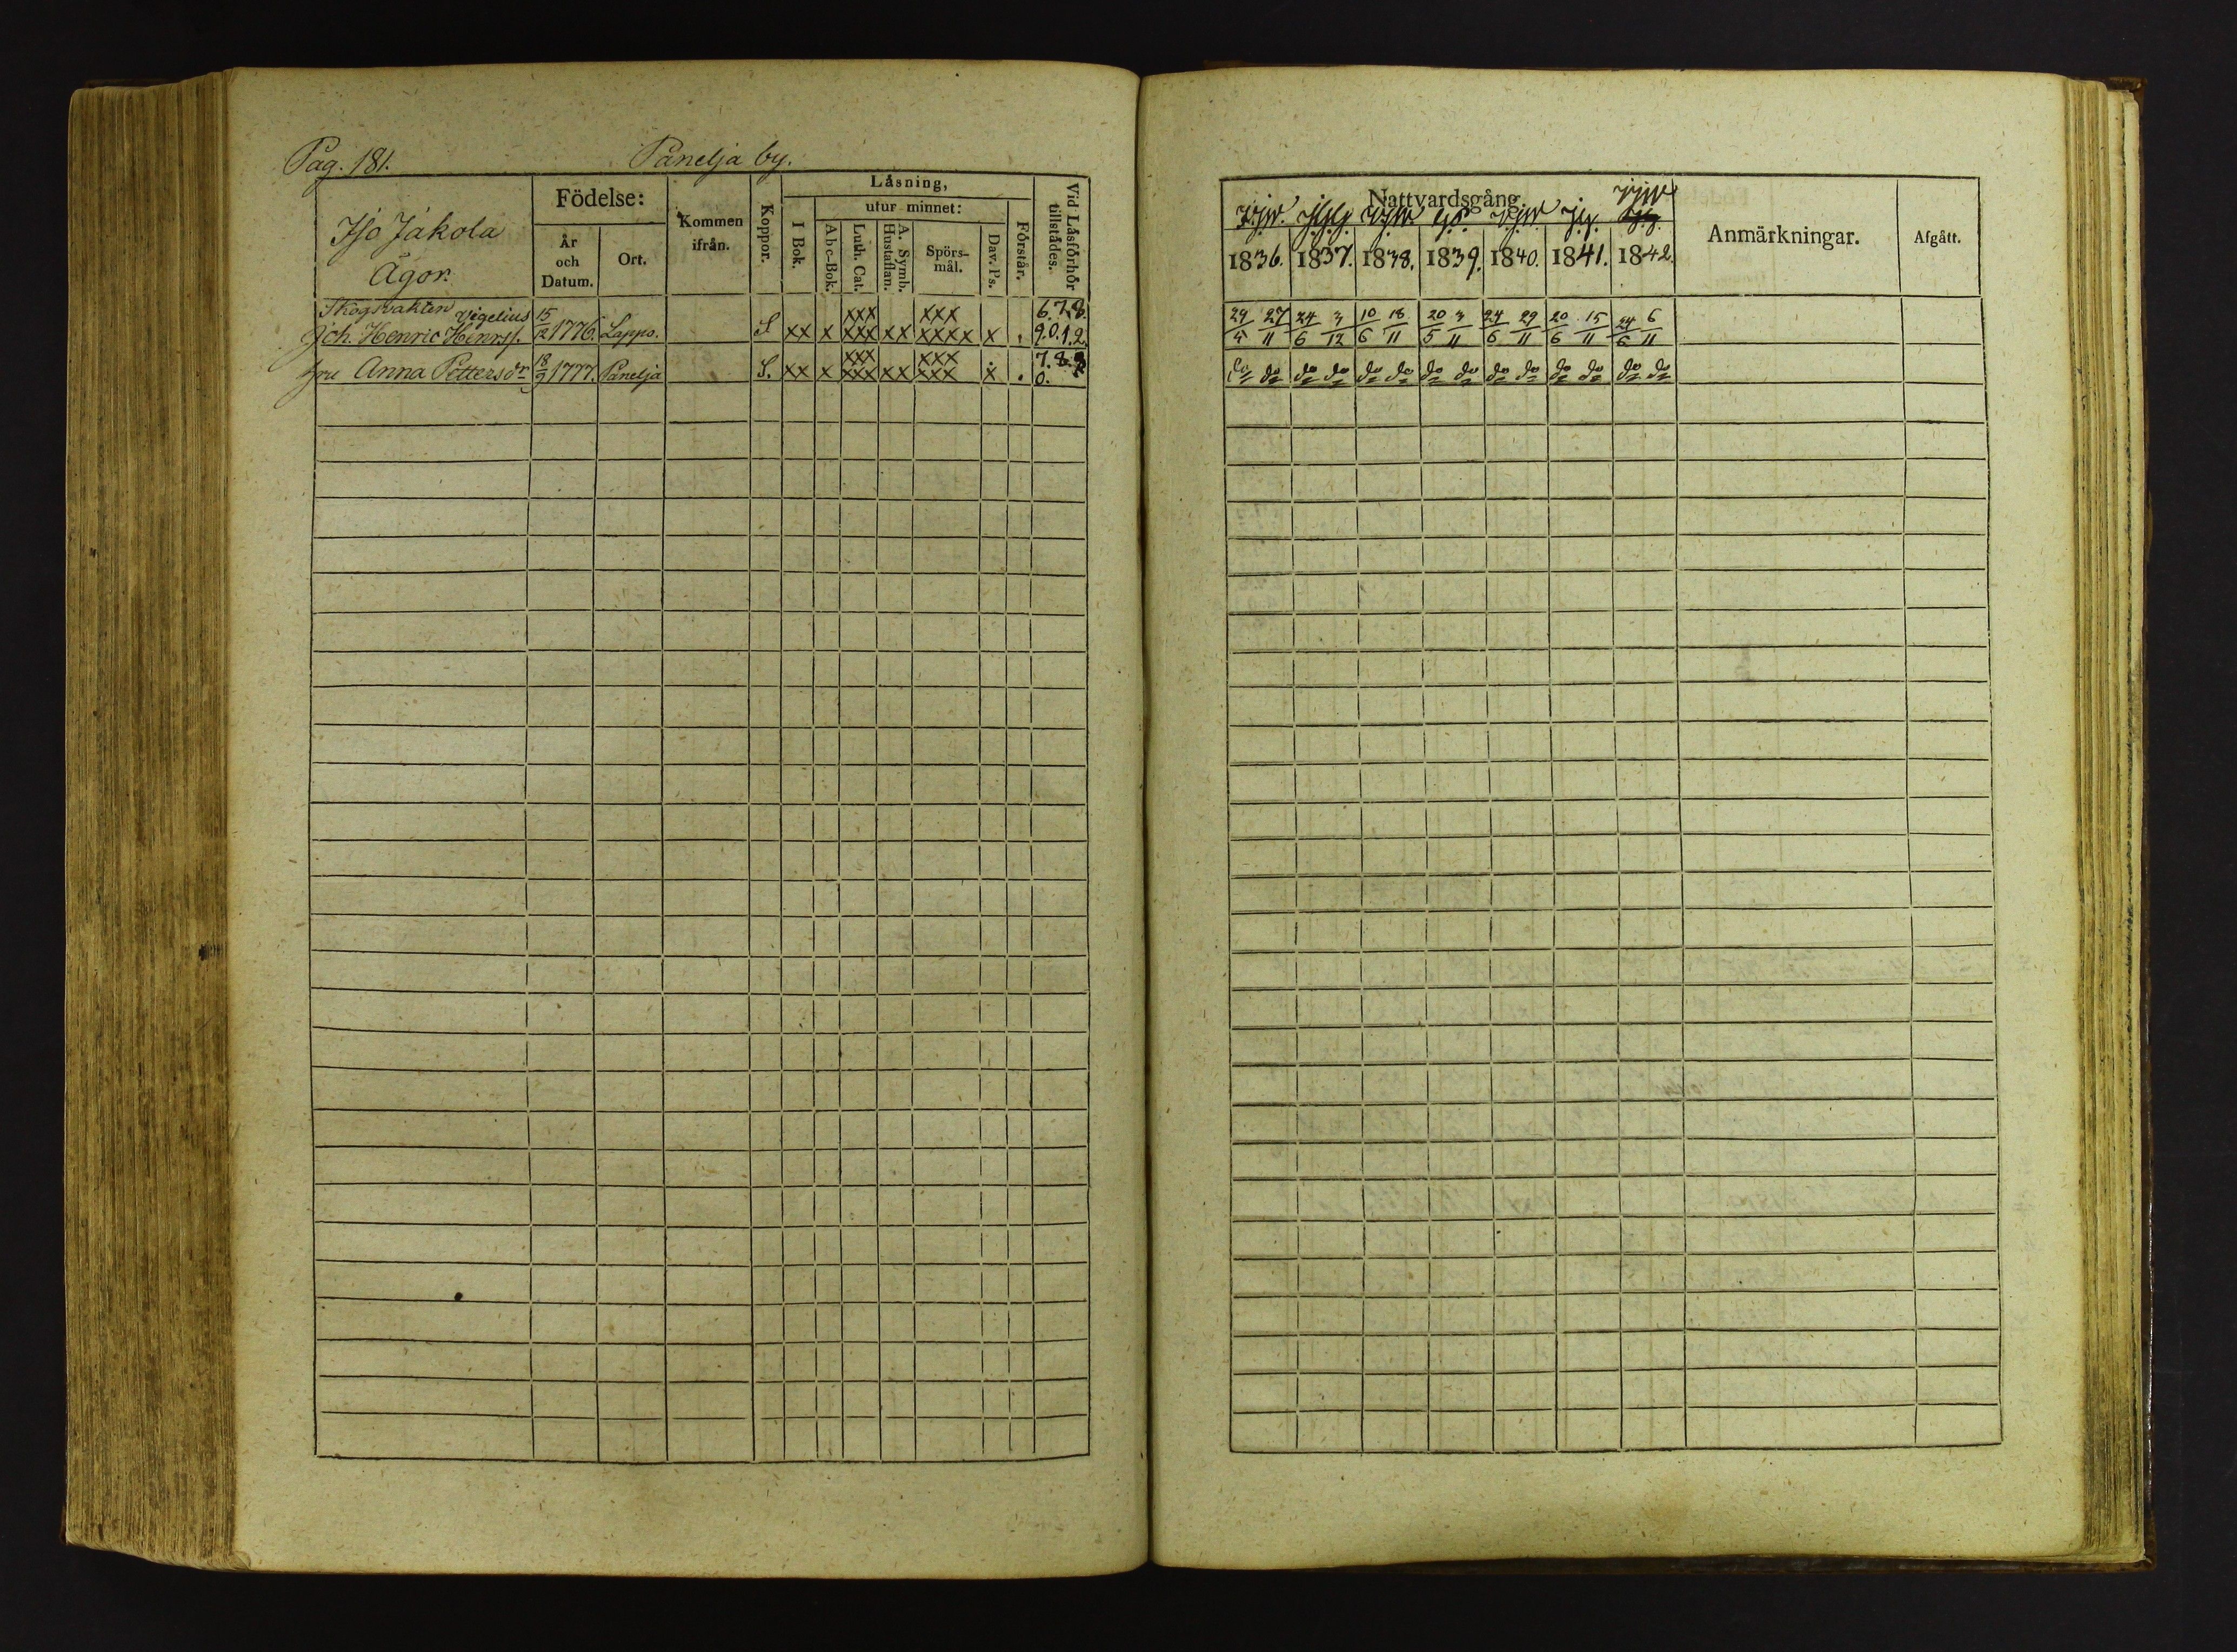 Pag. 181. Panelja by.
Iso Jakola
Ägor.
Födelse:
År och Datum.
Ort.
Kommen ifrån.
Koppor.
Läsning,
I Bok.
utur minnet:
Abc-Bok.
Luth. Cat.
A. Symb. Hustaflan.
Spörs-mål.
Dav. Ps.
Förstår.
Vid Läsförhör tillstädes.
Skogvakten Vigelius 15 xxx xxx 6.7.8.
Joh. Henric Henrss. 12 1776. Lappo. S xx x xxx xx xxxx x . 9.0.1.2.
18 xxx xxx 7.8.9
hru Anna Pettersdr 9 1777. Panelja S. xx x xxx xx xxx x . 0.
Nattvardsgång.
1836. 1837. 1838. 1839. 1840. 1841. 1842.
Anmärkningar.
Afgått.
29 27 24 3 10 18 20 3 24 29 20 15 24 6
5 11 6 12 6 11 5 11 6 11 6 11 6 11
do do do do do do do do do do do do do do